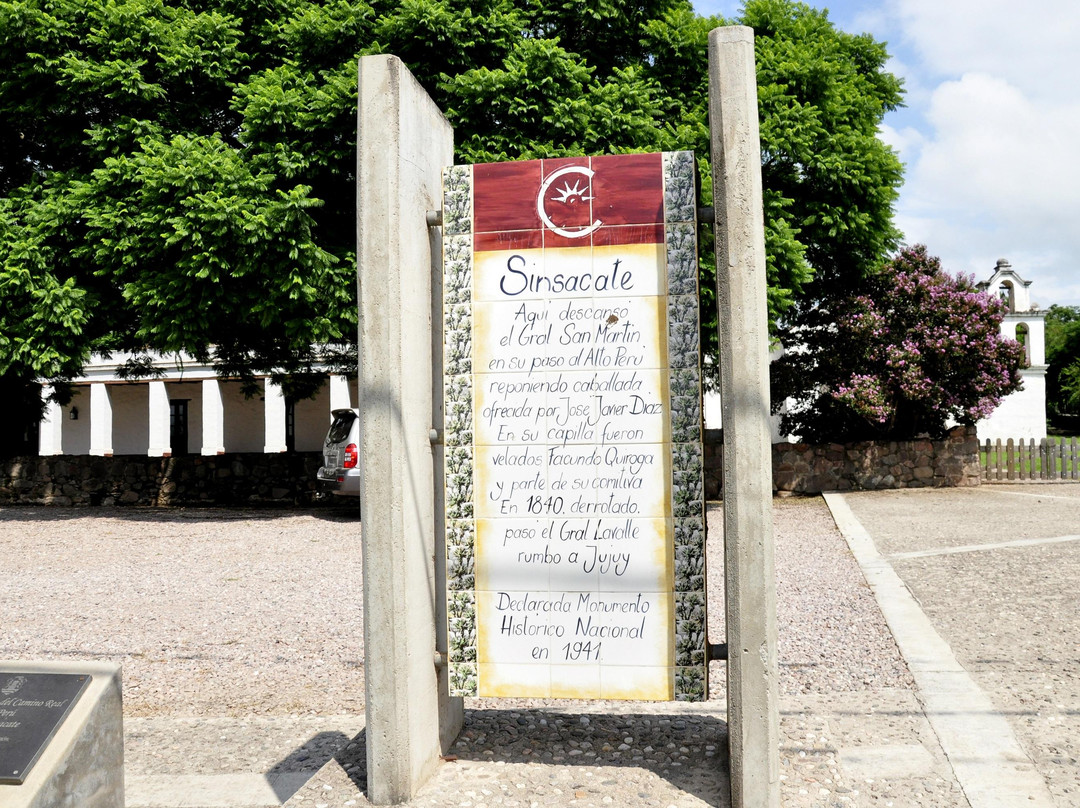 Sinsacate
Aqui descansó
el Gral San Martin
en su paso al Alto Perú
reponiendo caballada
ofrecida por Jose Javier Diaz
En su capilla fueron
velados Facundo Quiroga
y parte de su comitiva
En 1840, derrotado,
pasó el Gral Lavalle
rumbo a Jujuy
Declarada Monumento
Historico Nacional
en 1941.
del Camino Real
Perú